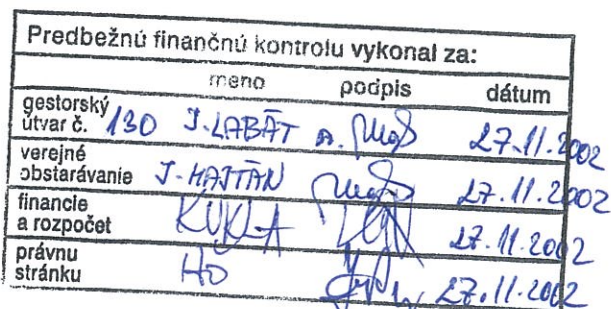 Predbežnú finančnú kontrolu vykonal za:
meno podpis dátum
gestorský
útvar č. 130 J. LABÁT 27.11.2002
verejné
obstarávanie J. HAJTÁN 27.11.2002
financie
a rozpočet KUKLA 27.11.2002
právnu
stránku HO 27.11.2002